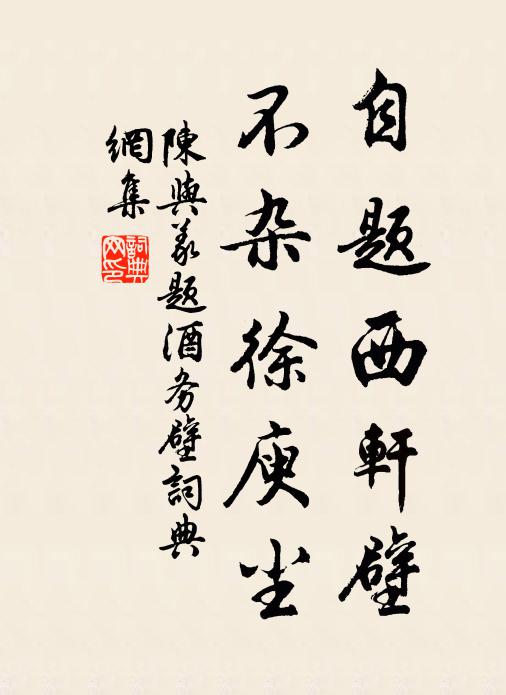 自题西軒壁
不杂徐庾尘
陳與义题酒务壁詞典
網集
詞典网印